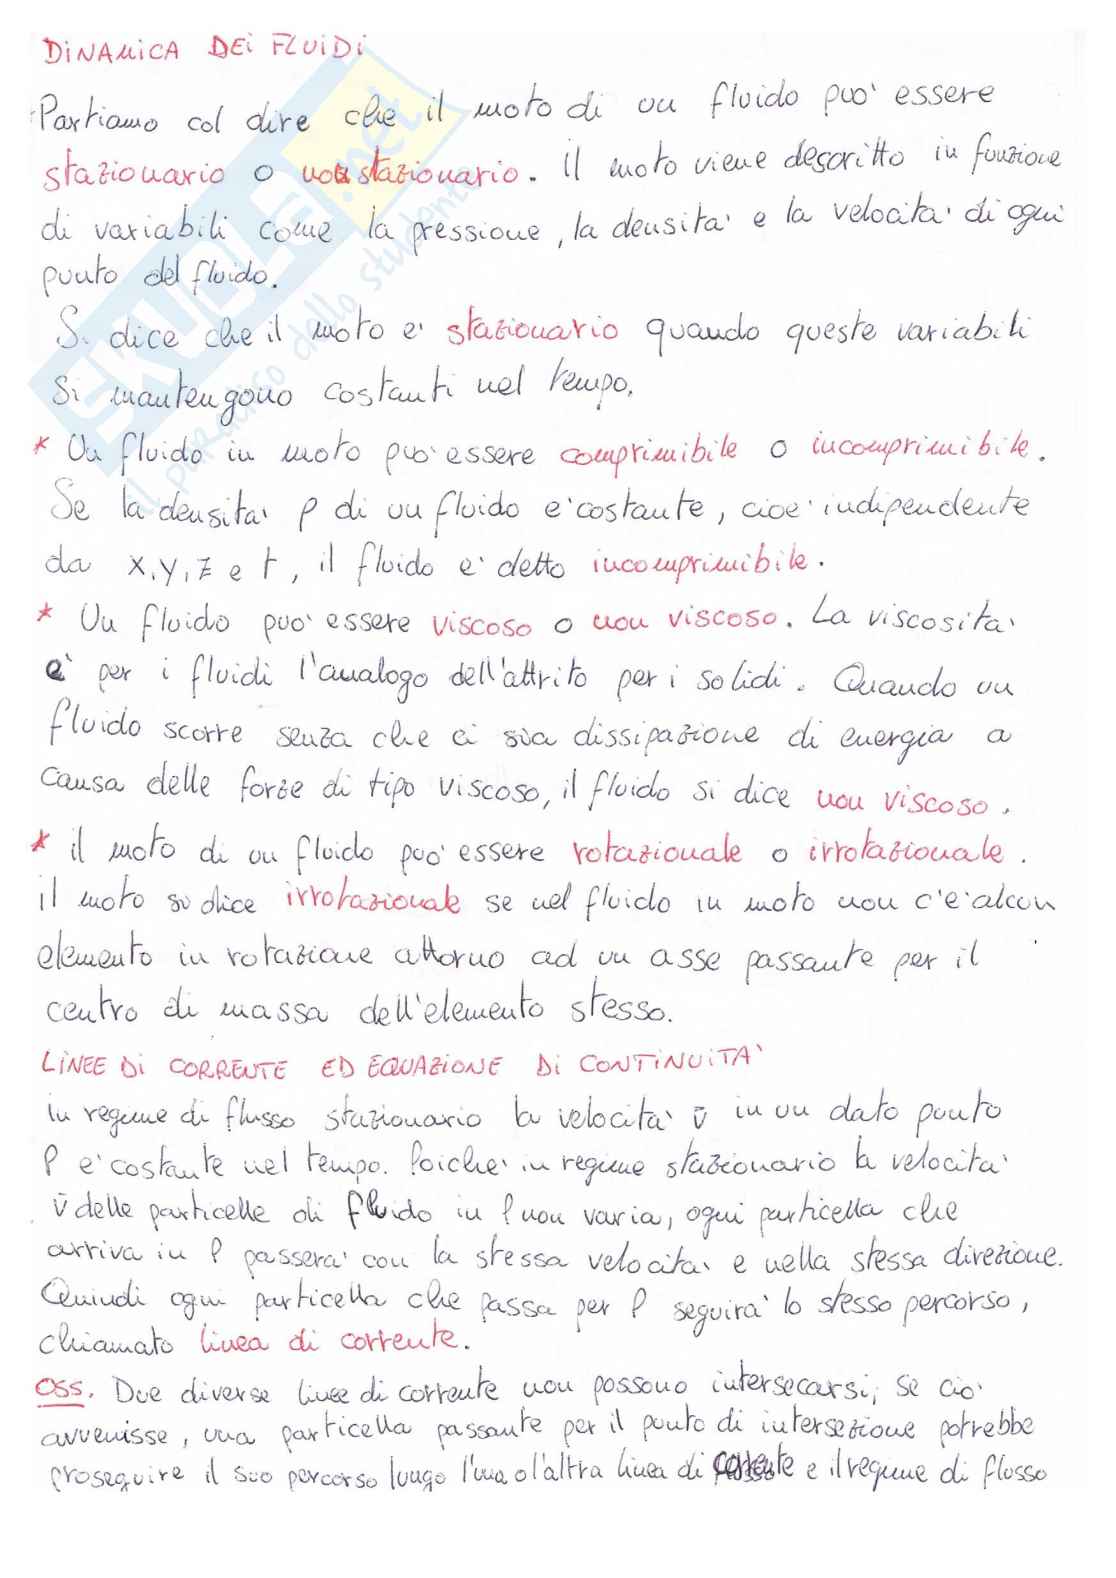 DINAMICA DEI FLUIDI
Partiamo col dire che il moto di un fluido puo' essere
stazionario o non stazionario. il moto viene descritto in funzione
di variabili come la pressione, la densita' e la velocita' di ogni
punto del fluido.
Si dice che il moto e' stazionario quando queste variabili
si mantengono costanti nel tempo.
* Un fluido in moto puo' essere comprimibile o incomprimibile.
Se la densita' ρ di un fluido e' costante, cioe' indipendente
da x, y, z e t, il fluido e' detto incomprimibile.
* Un fluido puo' essere viscoso o non viscoso. La viscosita'
e' per i fluidi l'analogo dell'attrito per i solidi. Quando un
fluido scorre senza che ci sia dissipazione di energia a
causa delle forze di tipo viscoso, il fluido si dice non viscoso.
* il moto di un fluido puo' essere rotazionale o irrotazionale.
il moto si dice irrotazionale se nel fluido in moto non c'e' alcun
elemento in rotazione attorno ad un asse passante per il
centro di massa dell'elemento stesso.
LINEE DI CORRENTE ED EQUAZIONE DI CONTINUITA'
in regime di flusso stazionario la velocita' v̄ in un dato punto
P e' costante nel tempo. Poiche' in regime stazionario la velocita'
v̄ delle particelle di fluido in P non varia, ogni particella che
arriva in P passera' con la stessa velocita' e nella stessa direzione.
Quindi ogni particella che passa per P seguira' lo stesso percorso,
chiamato linea di corrente.
OSS. Due diverse linee di corrente non possono intersecarsi; se cio'
avvenisse, una particella passante per il punto di intersezione potrebbe
proseguire il suo percorso lungo l'una o l'altra linea di corrente e il regime di flusso
SKUOLA.net
il paradiso dello studente